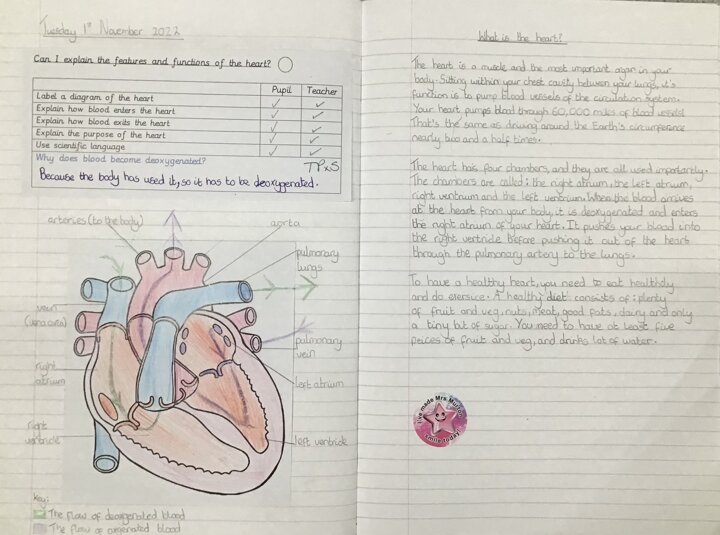 Tuesday 1st November 2022
Can I explain the features and functions of the heart?
Pupil Teacher
Label a diagram of the heart ✓ ✓
Explain how blood enters the heart ✓ ✓
Explain how blood exits the heart ✓ ✓
Explain the purpose of the heart ✓ ✓
Use scientific language ✓ ✓
Why does blood become deoxygenated?
TPxS
Because the body has used it, so it has to be deoxygenated.
arteries (to the body)
aorta
pulmonary
lungs
vein
(vena cava)
pulmonary
vein
right
atrium
left atrium
right
ventricle
left ventricle
key:
The flow of deoxygenated blood
The flow of oxygenated blood
What is the heart?
The heart is a muscle and the most important organ in your
body. Sitting within your chest cavity between your lungs, it's
function is to pump blood vessels of the circulation system.
Your heart pumps blood through 60,000 miles of blood vessels!
That's the same as driving around the Earth's circumference
nearly two and a half times.
The heart has four chambers, and they are all used importantly.
The chambers are called: the right atrium, the left atrium,
right ventrium and the left ventrium. When the blood arrives
at the heart from your body, it is deoxygenated and enters
the right atrium of your heart. It pushes your blood into
the right ventricle before pushing it out of the heart
through the pulmonary artery to the lungs.
To have a healthy heart, you need to eat healthily
and do exersice. A healthy diet consists of: plenty
of fruit and veg, nuts, meat, good fats, dairy and only
a tiny bit of sugar. You need to have at least five
peices of fruit and veg, and drinks lot of water.
I've made Mrs
smile today!